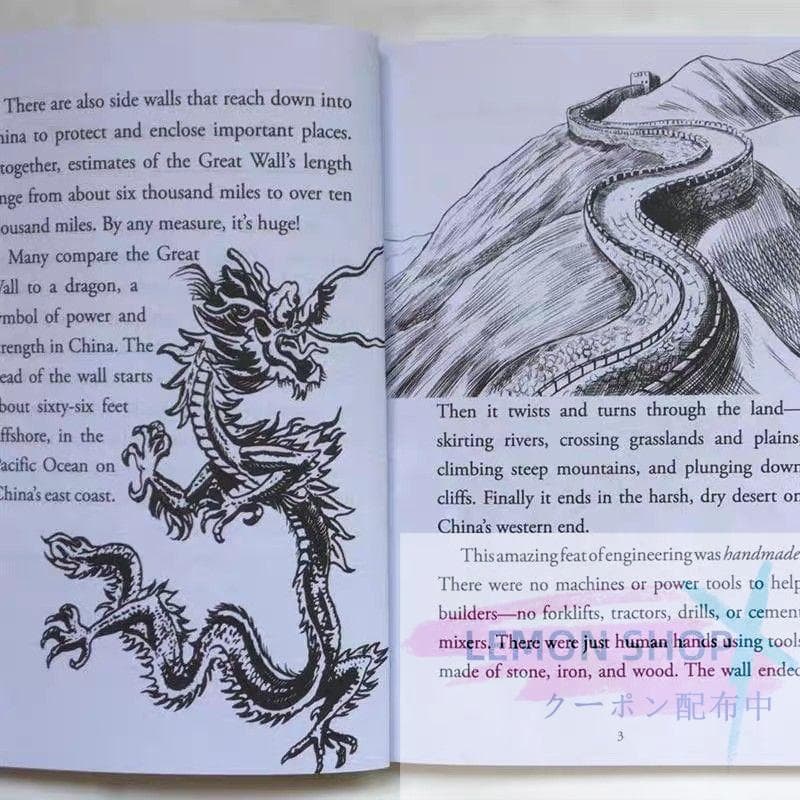 There are also side walls that reach down into
hina to protect and enclose important places.
together, estimates of the Great Wall's length
nge from about six thousand miles to over ten
ousand miles. By any measure, it's huge!
Many compare the Great
Wall to a dragon, a
mbol of power and
rength in China. The
ead of the wall starts
bout sixty-six feet
ffshore, in the
Pacific Ocean on
China's east coast.
Then it twists and turns through the land—
skirting rivers, crossing grasslands and plains
climbing steep mountains, and plunging down
cliffs. Finally it ends in the harsh, dry desert on
China's western end.
This amazing feat of engineering was handmade
There were no machines or power tools to help
builders—no forklifts, tractors, drills, or cement
mixers. There were just human hands using tools
made of stone, iron, and wood. The wall ended
LEMON SHOP
クーポン配布中
3